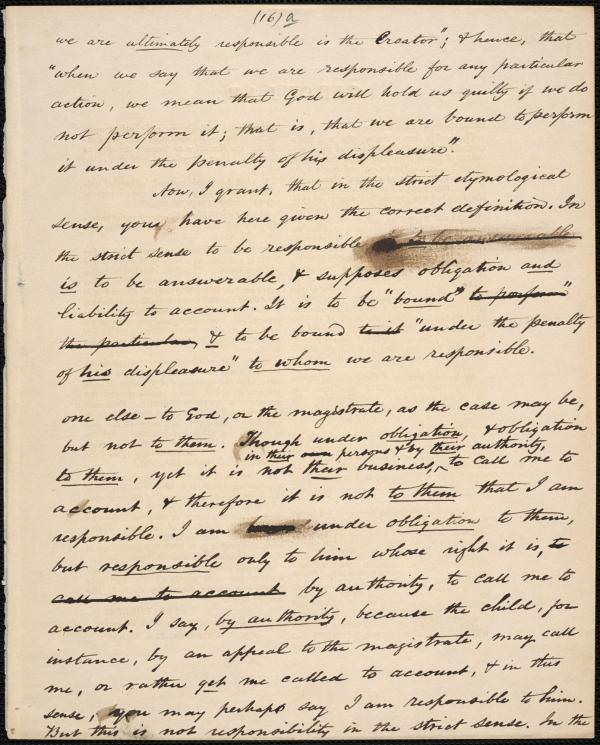 (16) a
we are ultimately responsible is the Creator"; & hence, that
"when we say that we are responsible for any particular
action, we mean that God will hold us guilty if we do
not perform it; that is, that we are bound to perform
it under the penalty of his displeasure".
Now, I grant, that in the strict etymological
sense, you have here given the correct definition. In
the strict sense to be responsible to be answerable
is to be answerable, & supposes obligation and
liability to account. It is to be "bound" to perform"
the particular, & to be bound to it "under the penalty
of his displeasure" to whom we are responsible.
one else – to God, or the magistrate, as the case may be,
but not to them. Though under obligation, & obligation
in their own persons & by their authority,
to them, yet it is not their business, to call me to
account, & therefore it is not to them that I am
responsible. I am under obligation to them,
but responsible only to him whose right it is, to
call me to account by authority, to call me to
account. I say, by authority, because the child, for
instance, by an appeal to the magistrate, may call
me, or rather get me called to account, & in this
sense, you may perhaps say I am responsible to him.
But this is not responsibility in the strict sense. In the